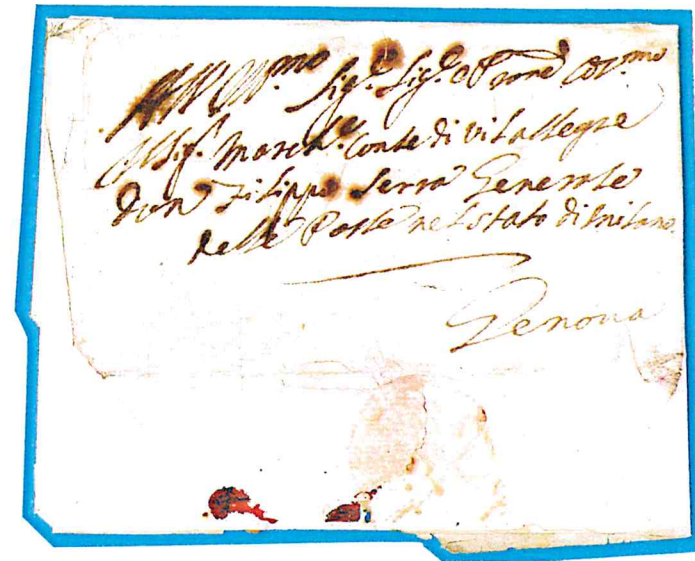 All Ill.mo Sig.r Sig.r e Pron Col.mo
Il Sig.r March.e Conte di Villallegre
Don Filippo Serra Generale
delle Poste nel Stato di Milano
Genova